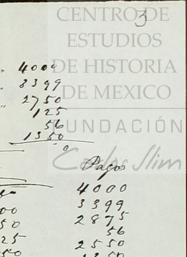 CENTRO DE
3
ESTUDIOS
DE HISTORIA
DE MEXICO
FUNDACIÓN
Carlos Slim
" 4000
" 3399
" 2750
" 125
56
1350
Pagos
4000
3399
50 2875
50 56
25 2550
50 1350